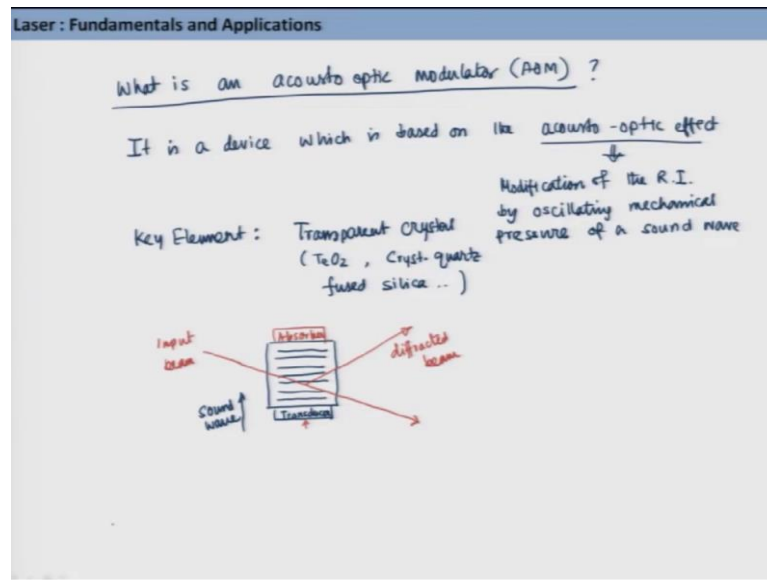 Laser : Fundamentals and Applications
What is an acousto optic modulator (AOM) ?
It is a device which is based on the acousto-optic effect
Modification of the R.I.
by oscillating mechanical
pressure of a sound wave
Key Element : Transparent Crystal
(TeO2, Cryst. quartz
fused silica .. )
Input
beam
Absorber
diffracted
beam
Sound
wave
Transducer